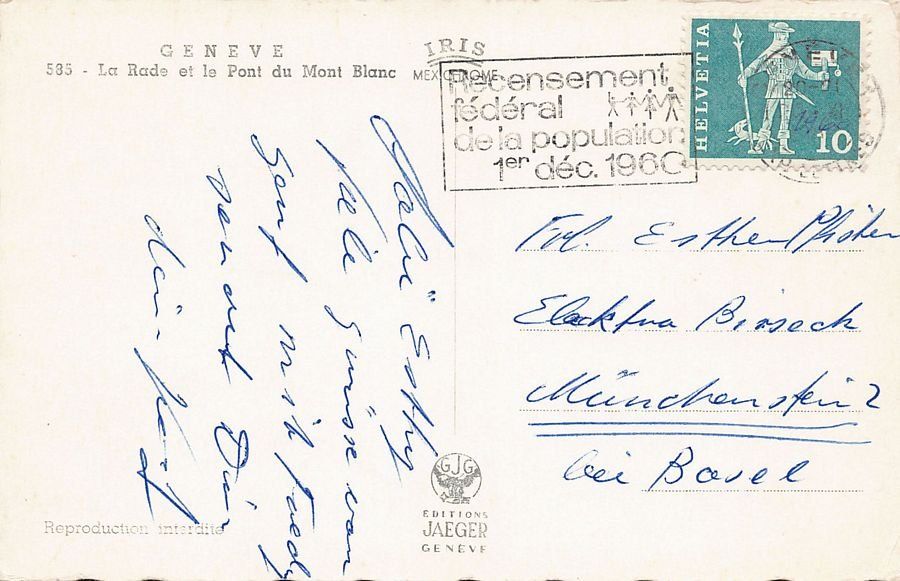 GENEVE
585 - La Rade et le Pont du Mont Blanc
IRIS
MEXICHROME
Recensement
fédéral
de la population
1er déc. 1960
HELVETIA
10
Frl. Esther Pfister
Elecktra Birseck
Münchenstein 2
bei Basel
Esthy
viele Grüsse von
Genf mit
sendet Dir
dein
GJG
EDITIONS
JAEGER
GENÈVE
Reproduction interdite